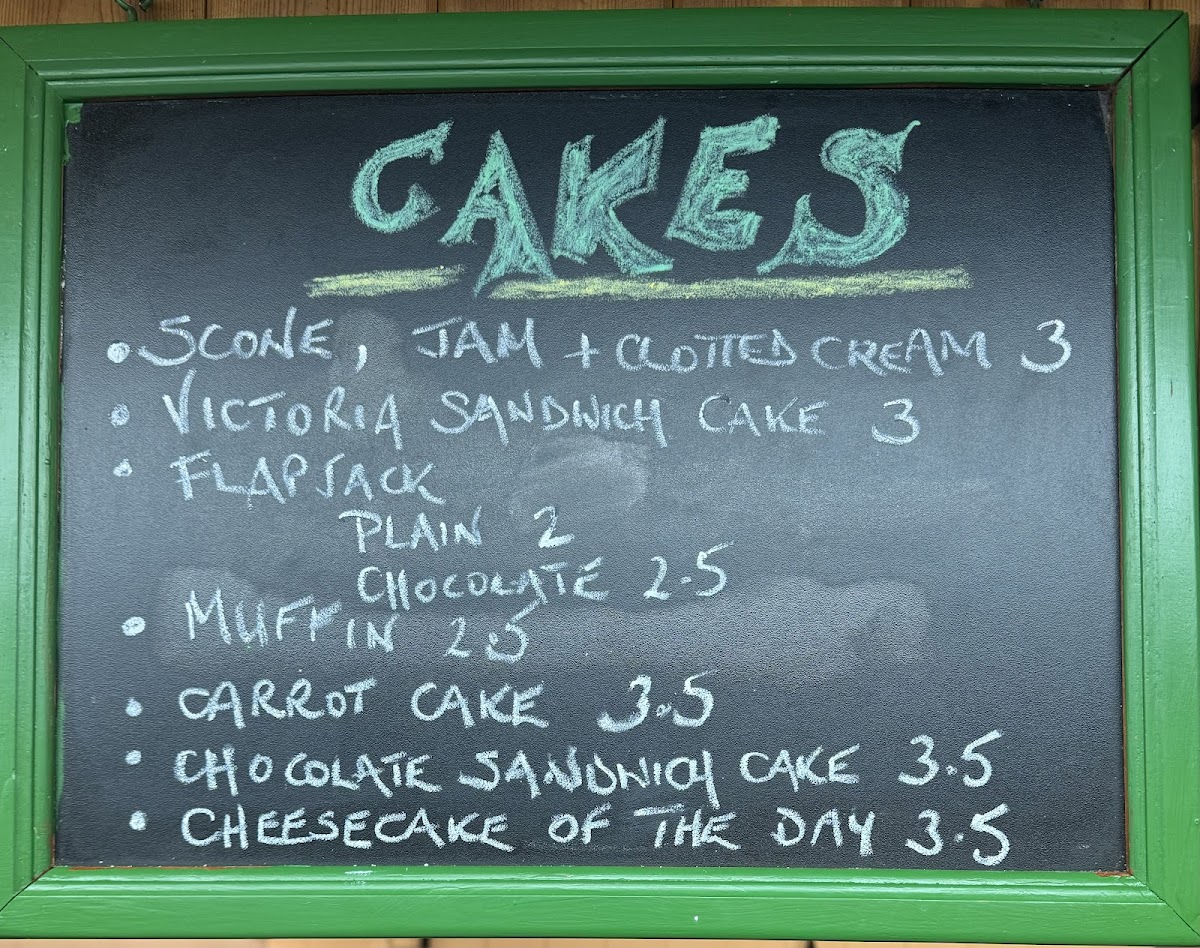 CAKES
• SCONE, JAM + CLOTTED CREAM 3
• VICTORIA SANDWICH CAKE 3
• FLAPJACK
PLAIN 2
CHOCOLATE 2.5
• MUFFIN 2.5
• CARROT CAKE 3.5
• CHOCOLATE SANDWICH CAKE 3.5
• CHEESECAKE OF THE DAY 3.5